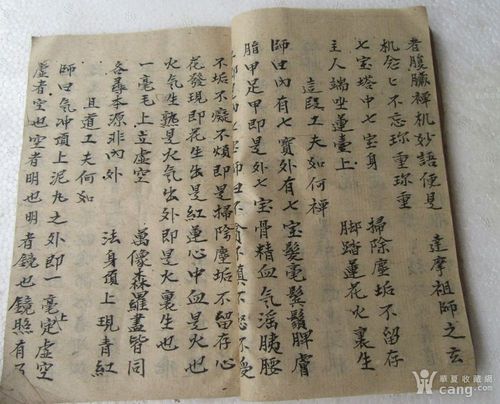 者腹臟禪机妙語便見 達摩祖師之玄
机忽々不忘珎重珎重
七宝塔中七宝身 掃除塵垢不留存
主人端坐蓮臺上 脚踏蓮花火裏生
這段工夫如何禪
師曰內有七寶外有七宝髮毫鬂鬚脾膚
脂甲足甲即是外七宝骨精血气滛胰腰
不垢不癡不煩即是掃除塵垢不留存心
花發現即花生出是紅蓮心中血是火也
火気生熱是火気出外即是火裏生也
一毫毛上立虛空 萬像森羅盖皆同
各尋本源非內外 法身頂上現青紅
且道工夫何如
師曰気冲頂上泥丸之外即一毫上定虛空
虛者空也空者明也明者鏡也鏡照有了
華夏收藏網
cang.com